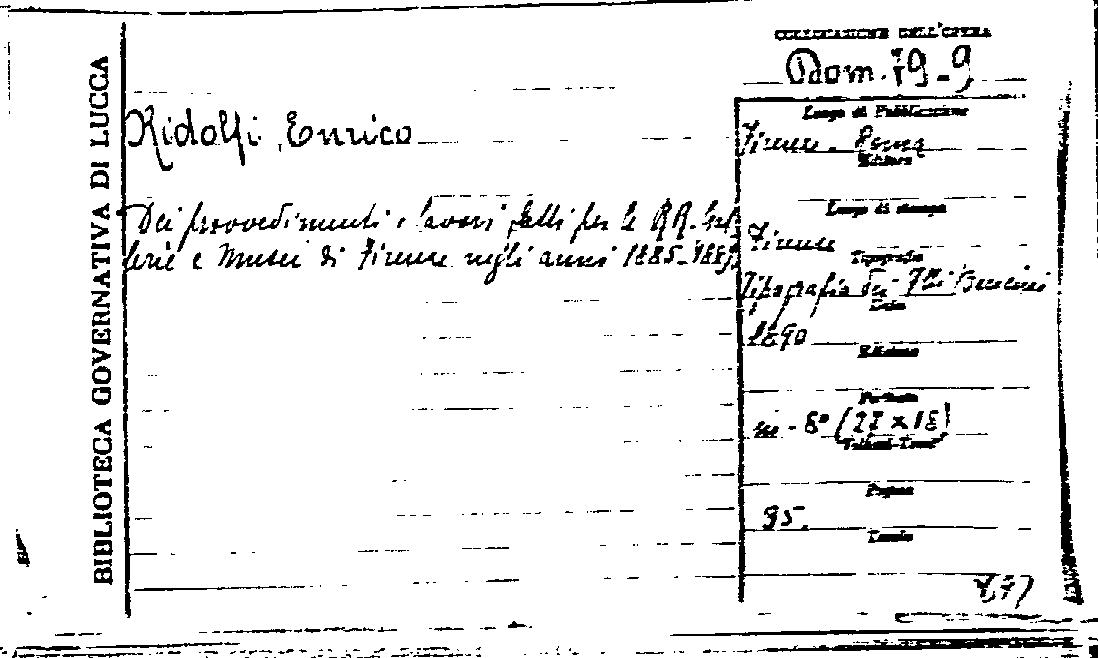 BIBLIOTECA GOVERNATIVA DI LUCCA
COLLOCAZIONE DELL'OPERA
Dom. 19-9
Ridolfi, Enrico
Dei provvedimenti e lavori fatti per le RR. Gal-
lerie e Musei di Firenze negli anni 1885-
Luogo di Pubblicazione
Firenze - Roma
Editore
Luogo di stampa
Firenze
Tipografia
Tipografia dei Bencini
Data
1890
Edizione
Formato
in-8° (27 x 18)
Volumi-Tomi
Pagine
95.
Tavole